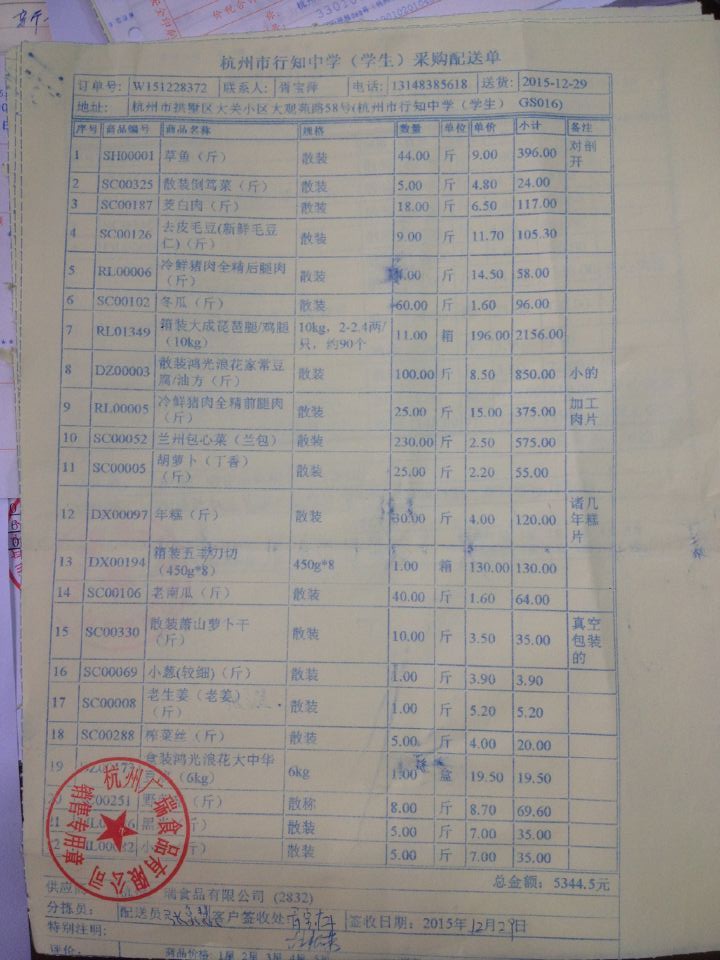 杭州市行知中学（学生）采购配送单
订单号: W151228372 联系人: 胥宝萍 电话: 13148385618 送货: 2015-12-29
地址: 杭州市拱墅区大关小区大观苑路58号(杭州市行知中学（学生） GS016)
序号 商品编号 商品名称 规格 数量 单位 单价 小计 备注
1 SH00001 草鱼（斤） 散装 44.00 斤 9.00 396.00 对剖开
2 SC00325 散装倒笃菜（斤） 散装 5.00 斤 4.80 24.00
3 SC00187 茭白肉（斤） 散装 18.00 斤 6.50 117.00
4 SC00126 去皮毛豆(新鲜毛豆仁)（斤） 散装 9.00 斤 11.70 105.30
5 RL00006 冷鲜猪肉全精后腿肉（斤） 散装 .00 斤 14.50 58.00
6 SC00102 冬瓜（斤） 散装 60.00 斤 1.60 96.00
7 RL01349 箱装大成琵琶腿/鸡腿（10kg） 10kg，2-2.4两/只，约90个 11.00 箱 196.00 2156.00
8 DZ00003 散装鸿光浪花家常豆腐/油方（斤） 散装 100.00 斤 8.50 850.00 小的
9 RL00005 冷鲜猪肉全精前腿肉（斤） 散装 25.00 斤 15.00 375.00 加工肉片
10 SC00052 兰州包心菜（兰包） 散装 230.00 斤 2.50 575.00
11 SC00005 胡萝卜（丁香）（斤） 散装 25.00 斤 2.20 55.00
12 DX00097 年糕（斤） 散装 30.00 斤 4.00 120.00 诸几年糕片
13 DX00194 箱装五丰刀切（450g*8） 450g*8 1.00 箱 130.00 130.00
14 SC00106 老南瓜（斤） 散装 40.00 斤 1.60 64.00
15 SC00330 散装萧山萝卜干（斤） 散装 10.00 斤 3.50 35.00 真空包装的
16 SC00069 小葱(较细)（斤） 散装 1.00 斤 3.90 3.90
17 SC00008 老生姜（老姜）（斤） 散装 1.00 斤 5.20 5.20
18 SC00288 榨菜丝（斤） 散装 5.00 斤 4.00 20.00
19 食装鸿光浪花大中华（6kg） 6kg 1.00 盒 19.50 19.50
20 SC00251 野（斤） 散称 8.00 斤 8.70 69.60
21 斤） 散装 5.00 斤 7.00 35.00
小 ） 散装 5.00 斤 7.00 35.00
总金额: 5344.5元
供应 瑞食品有限公司 (2832)
分拣员: 配送员 客户签收处 签收日期: 2015年12月29日
特别注明:
评价: 商品价格: 1星 2星 3星 4星 5星
杭州广瑞食品有限公司
销售专用章